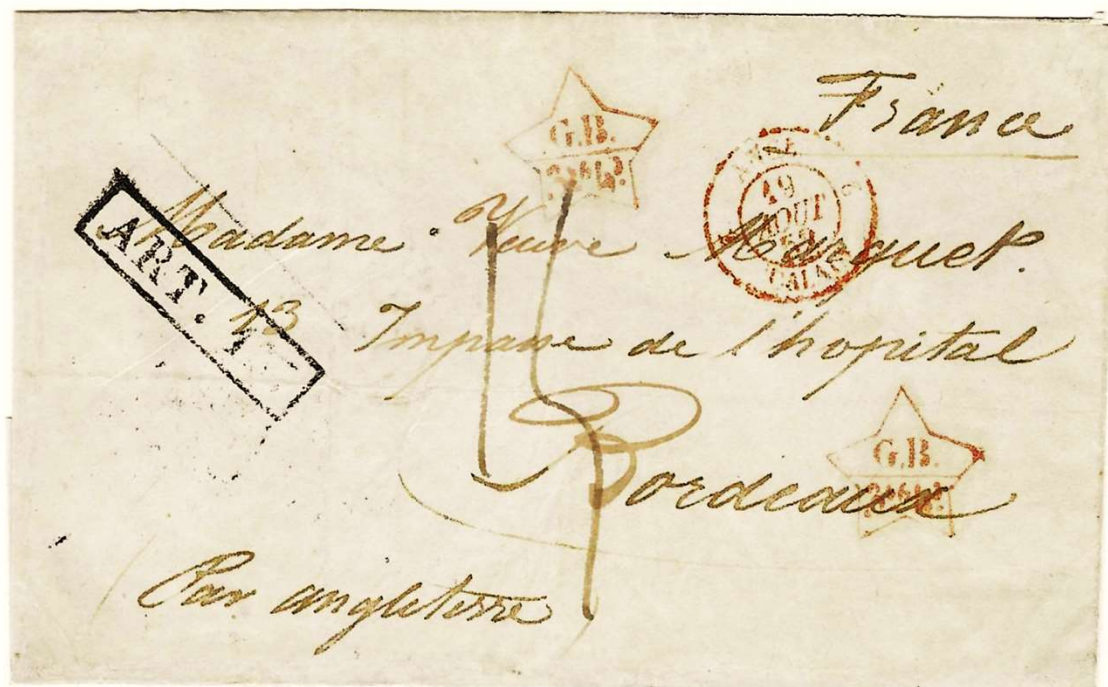 France
G.B.
19
AOUT
CALAIS
ART. 1
Madame Veuve Marquet.
13 Impasse de l'hopital
Bordeaux
G.B.
Par angleterre